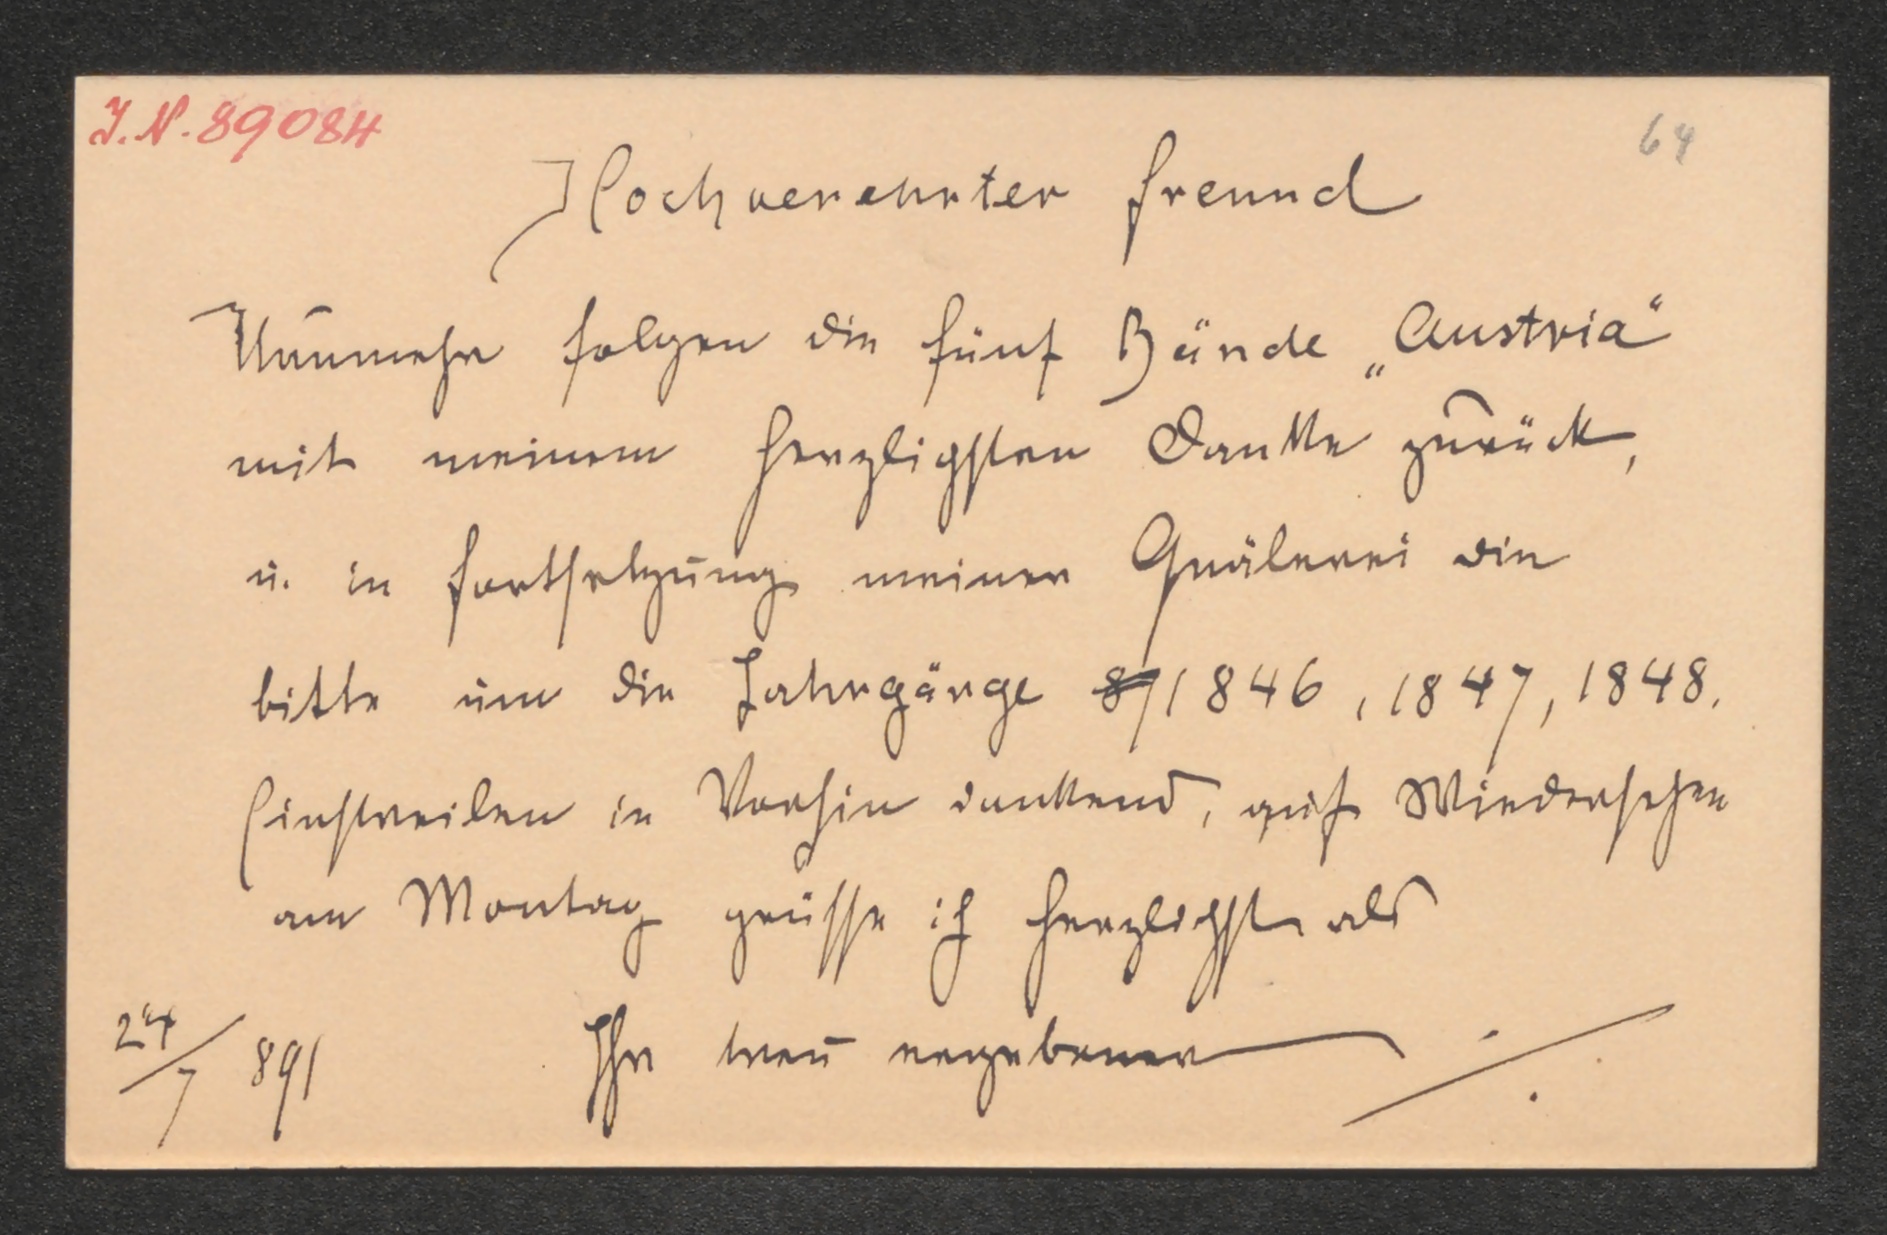 I.N. 89084
64
Hochverehrter Freund
Nunmehr folgen die fünf Bände „Austria“
mit meinem herzligsten Dankke zurück,
u. in Fortsetzung meiner Quälerei die
bitte um die Jahrgänge 87 1846, 1847, 1848.
Einstweilen in Vorhin dankkend, auf Wiedersehen
am Montag grüsse ich herzlichst als
Ihr treu ergebener ./.
24/7 891